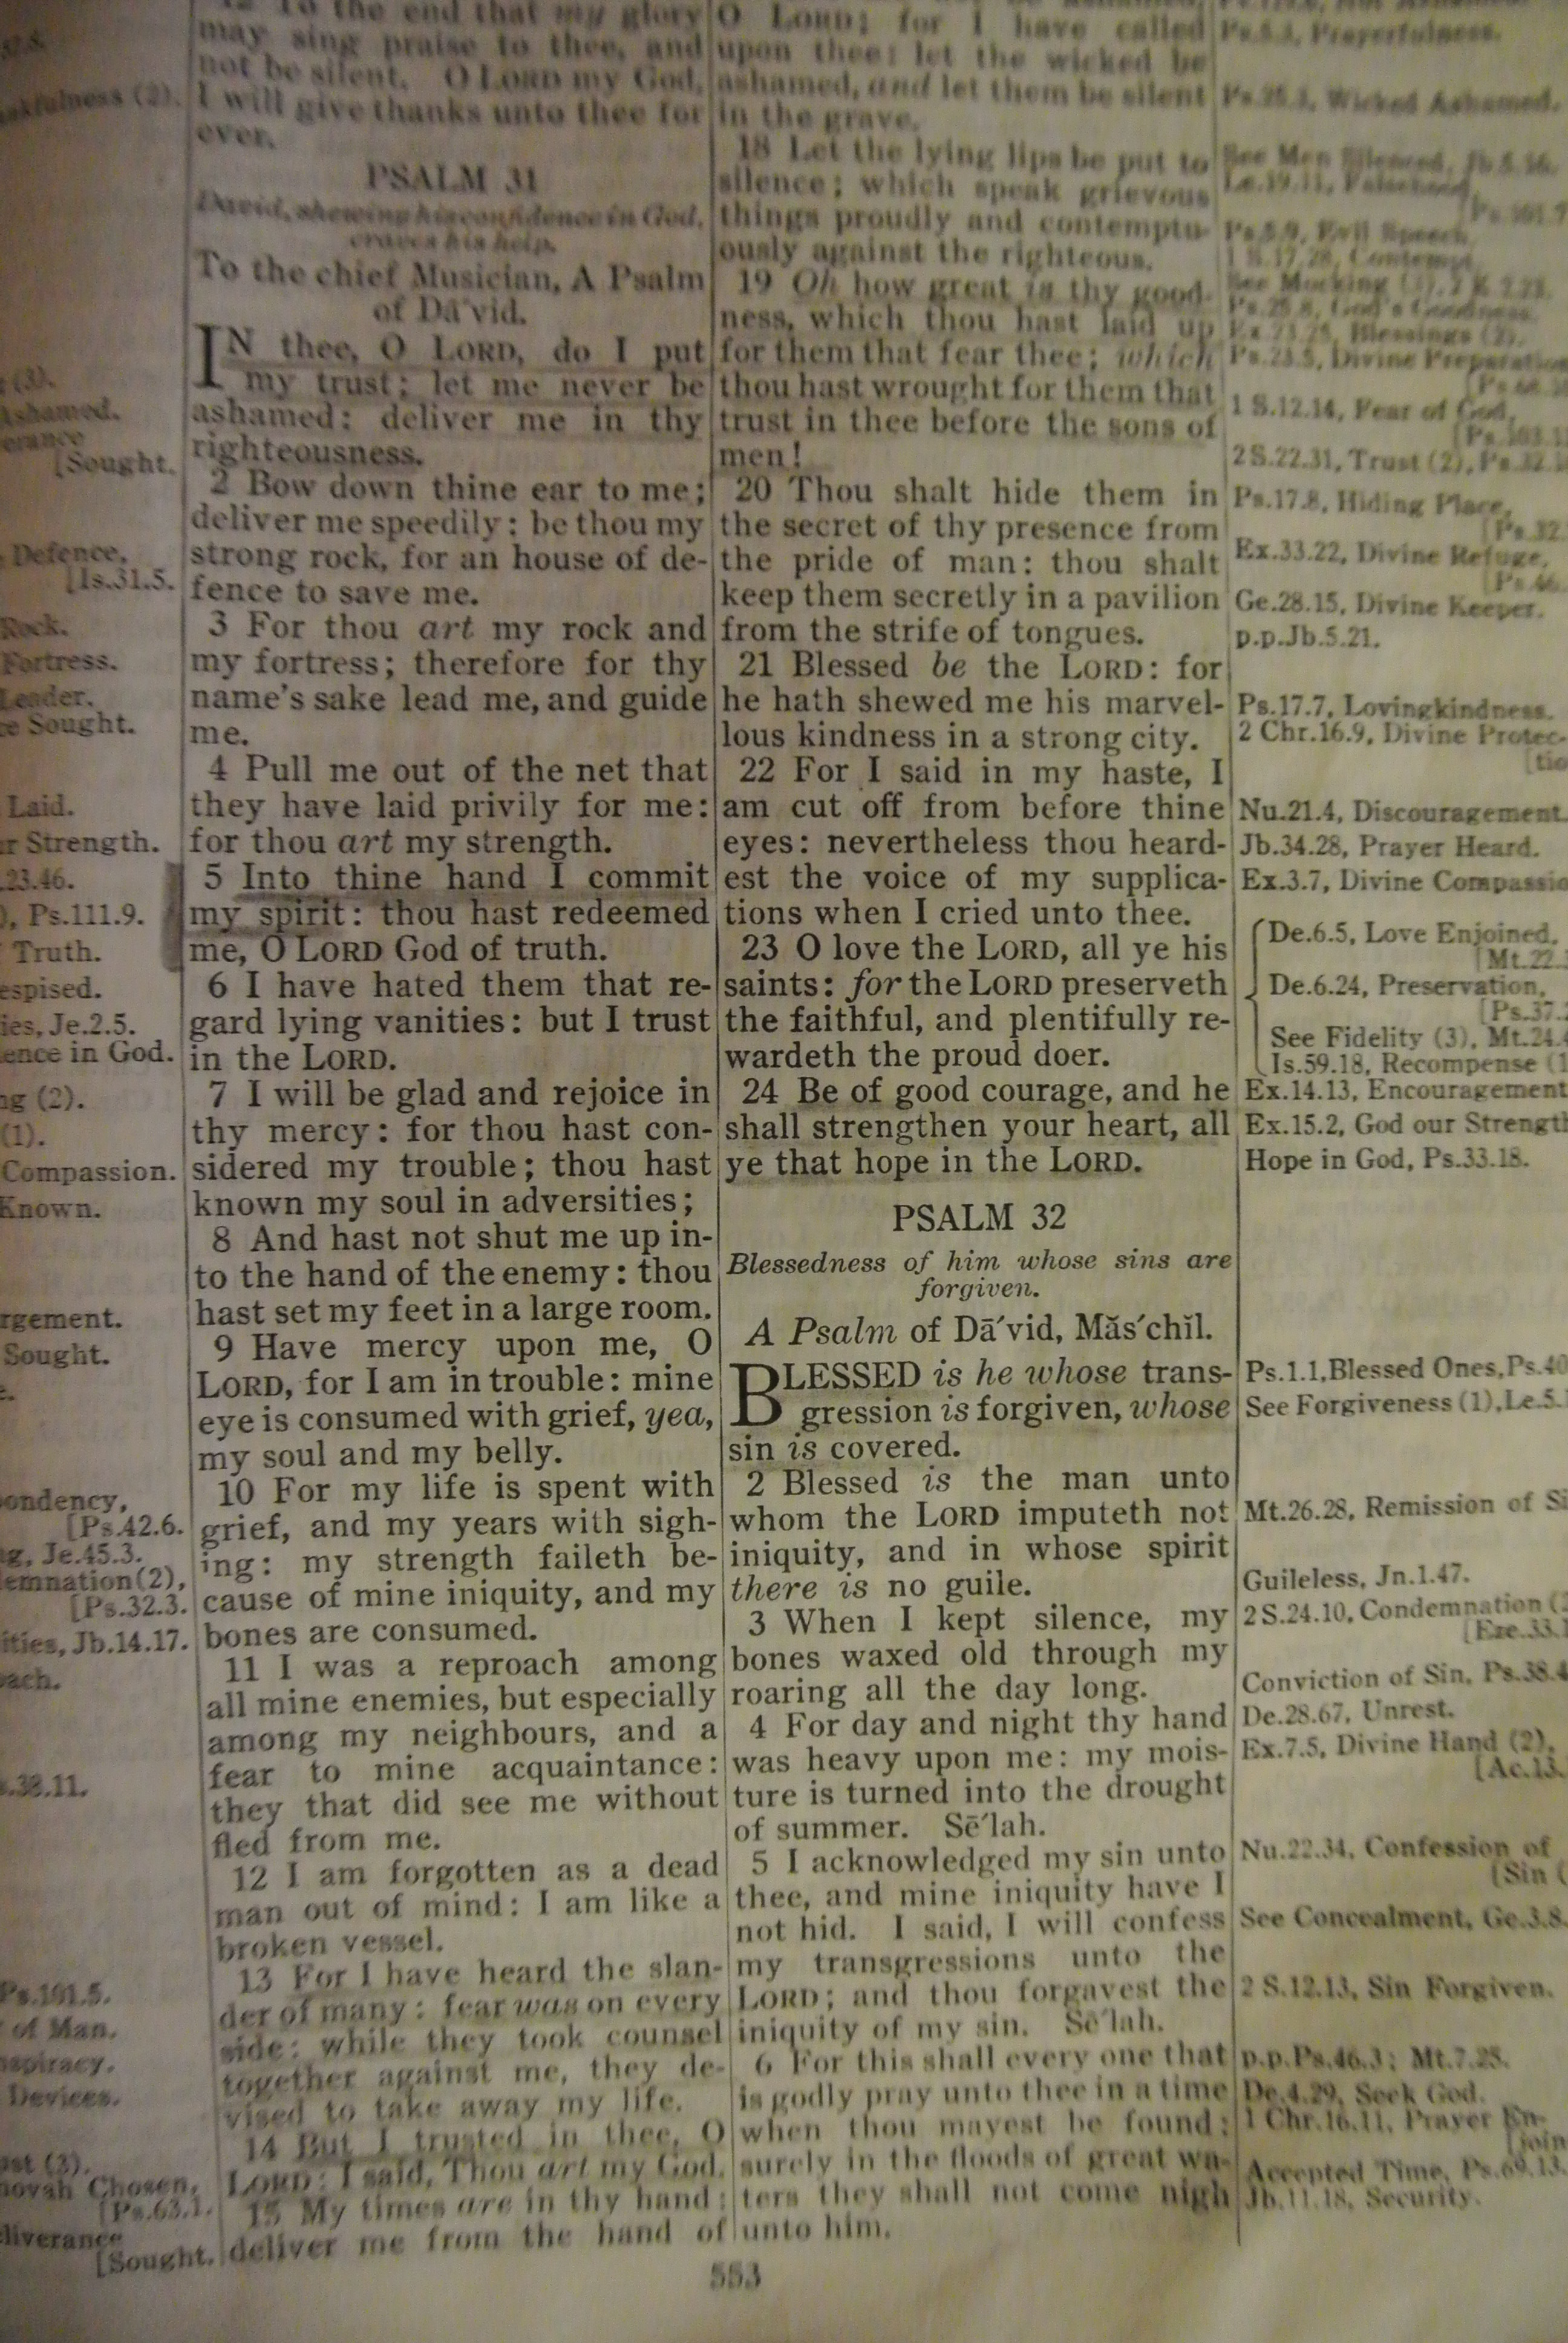 12 To the end that my glory
may sing praise to thee, and
not be silent. O LORD my God,
I will give thanks unto thee for
ever.
PSALM 31
David, shewing his confidence in God,
craves his help.
To the chief Musician, A Psalm
of Dā′vid.
IN thee, O LORD, do I put
my trust; let me never be
ashamed: deliver me in thy
righteousness.
2 Bow down thine ear to me;
deliver me speedily: be thou my
strong rock, for an house of de-
fence to save me.
3 For thou art my rock and
my fortress; therefore for thy
name's sake lead me, and guide
me.
4 Pull me out of the net that
they have laid privily for me:
for thou art my strength.
5 Into thine hand I commit
my spirit: thou hast redeemed
me, O LORD God of truth.
6 I have hated them that re-
gard lying vanities: but I trust
in the LORD.
7 I will be glad and rejoice in
thy mercy: for thou hast con-
sidered my trouble; thou hast
known my soul in adversities;
8 And hast not shut me up in-
to the hand of the enemy: thou
hast set my feet in a large room.
9 Have mercy upon me, O
LORD, for I am in trouble: mine
eye is consumed with grief, yea,
my soul and my belly.
10 For my life is spent with
grief, and my years with sigh-
ing: my strength faileth be-
cause of mine iniquity, and my
bones are consumed.
11 I was a reproach among
all mine enemies, but especially
among my neighbours, and a
fear to mine acquaintance:
they that did see me without
fled from me.
12 I am forgotten as a dead
man out of mind: I am like a
broken vessel.
13 For I have heard the slan-
der of many: fear was on every
side: while they took counsel
together against me, they de-
vised to take away my life.
14 But I trusted in thee, O
LORD: I said, Thou art my God.
15 My times are in thy hand:
deliver me from the hand of
O LORD; for I have called
upon thee: let the wicked be
ashamed, and let them be silent
in the grave.
18 Let the lying lips be put to
silence; which speak grievous
things proudly and contemptu-
ously against the righteous.
19 Oh how great is thy good-
ness, which thou hast laid up
for them that fear thee; which
thou hast wrought for them that
trust in thee before the sons of
men!
20 Thou shalt hide them in
the secret of thy presence from
the pride of man: thou shalt
keep them secretly in a pavilion
from the strife of tongues.
21 Blessed be the LORD: for
he hath shewed me his marvel-
lous kindness in a strong city.
22 For I said in my haste, I
am cut off from before thine
eyes: nevertheless thou heard-
est the voice of my supplica-
tions when I cried unto thee.
23 O love the LORD, all ye his
saints: for the LORD preserveth
the faithful, and plentifully re-
wardeth the proud doer.
24 Be of good courage, and he
shall strengthen your heart, all
ye that hope in the LORD.
PSALM 32
Blessedness of him whose sins are
forgiven.
A Psalm of Dā′vid, Măs′chĭl.
BLESSED is he whose trans-
gression is forgiven, whose
sin is covered.
2 Blessed is the man unto
whom the LORD imputeth not
iniquity, and in whose spirit
there is no guile.
3 When I kept silence, my
bones waxed old through my
roaring all the day long.
4 For day and night thy hand
was heavy upon me: my mois-
ture is turned into the drought
of summer. Sē′lah.
5 I acknowledged my sin unto
thee, and mine iniquity have I
not hid. I said, I will confess
my transgressions unto the
LORD; and thou forgavest the
iniquity of my sin. Sē′lah.
6 For this shall every one that
is godly pray unto thee in a time
when thou mayest be found:
surely in the floods of great wa-
ters they shall not come nigh
unto him.
Prayerfulness.
Wicked Ashamed.
1 S.12.14, Fear of God,
2 S.22.31, Trust (2),
Ps.17.8, Hiding Place,
Ex.33.22, Divine Refuge,
Ge.28.15, Divine Keeper.
p.p.Jb.5.21.
Ps.17.7, Lovingkindness.
2 Chr.16.9, Divine Protec-
Nu.21.4, Discouragement.
Jb.34.28, Prayer Heard.
Ex.3.7, Divine
De.6.5, Love Enjoined,
[Mt.22.
De.6.24, Preservation,
[Ps.37.
See Fidelity (3), Mt.24.
Is.59.18, Recompense
Ex.14.13, Encouragement
Ex.15.2, God our Strengt
Hope in God, Ps.33.18.
Ps.1.1, Blessed Ones, Ps.40
See Forgiveness (1), Le.5.
Mt.26.28, Remission of Si
Guileless, Jn.1.47.
2 S.24.10, Condemnation
Conviction of Sin, Ps.38.4
De.28.67, Unrest.
Ex.7.5, Divine Hand (2),
[Ac.13.
Nu.22.34, Confession of
[Sin
See Concealment, Ge.3.8.
2 S.12.13, Sin Forgiven.
p.p.Ps.46.3; Mt.7.25.
De.4.29, Seek God.
1 Chr.16.11, Prayer En-
[join
Accepted Time, Ps.69.13.
Jb.11.18, Security.
[Sought.
Defence,
[Is.31.5.
Rock.
Fortress.
Leader.
Sought.
Laid.
Strength.
23.46.
Ps.111.9.
Truth.
espised.
ies, Je.2.5.
ence in God.
(2).
(1).
Compassion.
Known.
rgement.
Sought.
ondency,
[Ps.42.6.
g, Je.45.3.
emnation(2),
[Ps.32.3.
ities, Jb.14.17.
ach.
.38.11.
Ps.101.5.
of Man.
Devices.
Chosen,
[Ps.63.1.
liverance
[Sought.
553